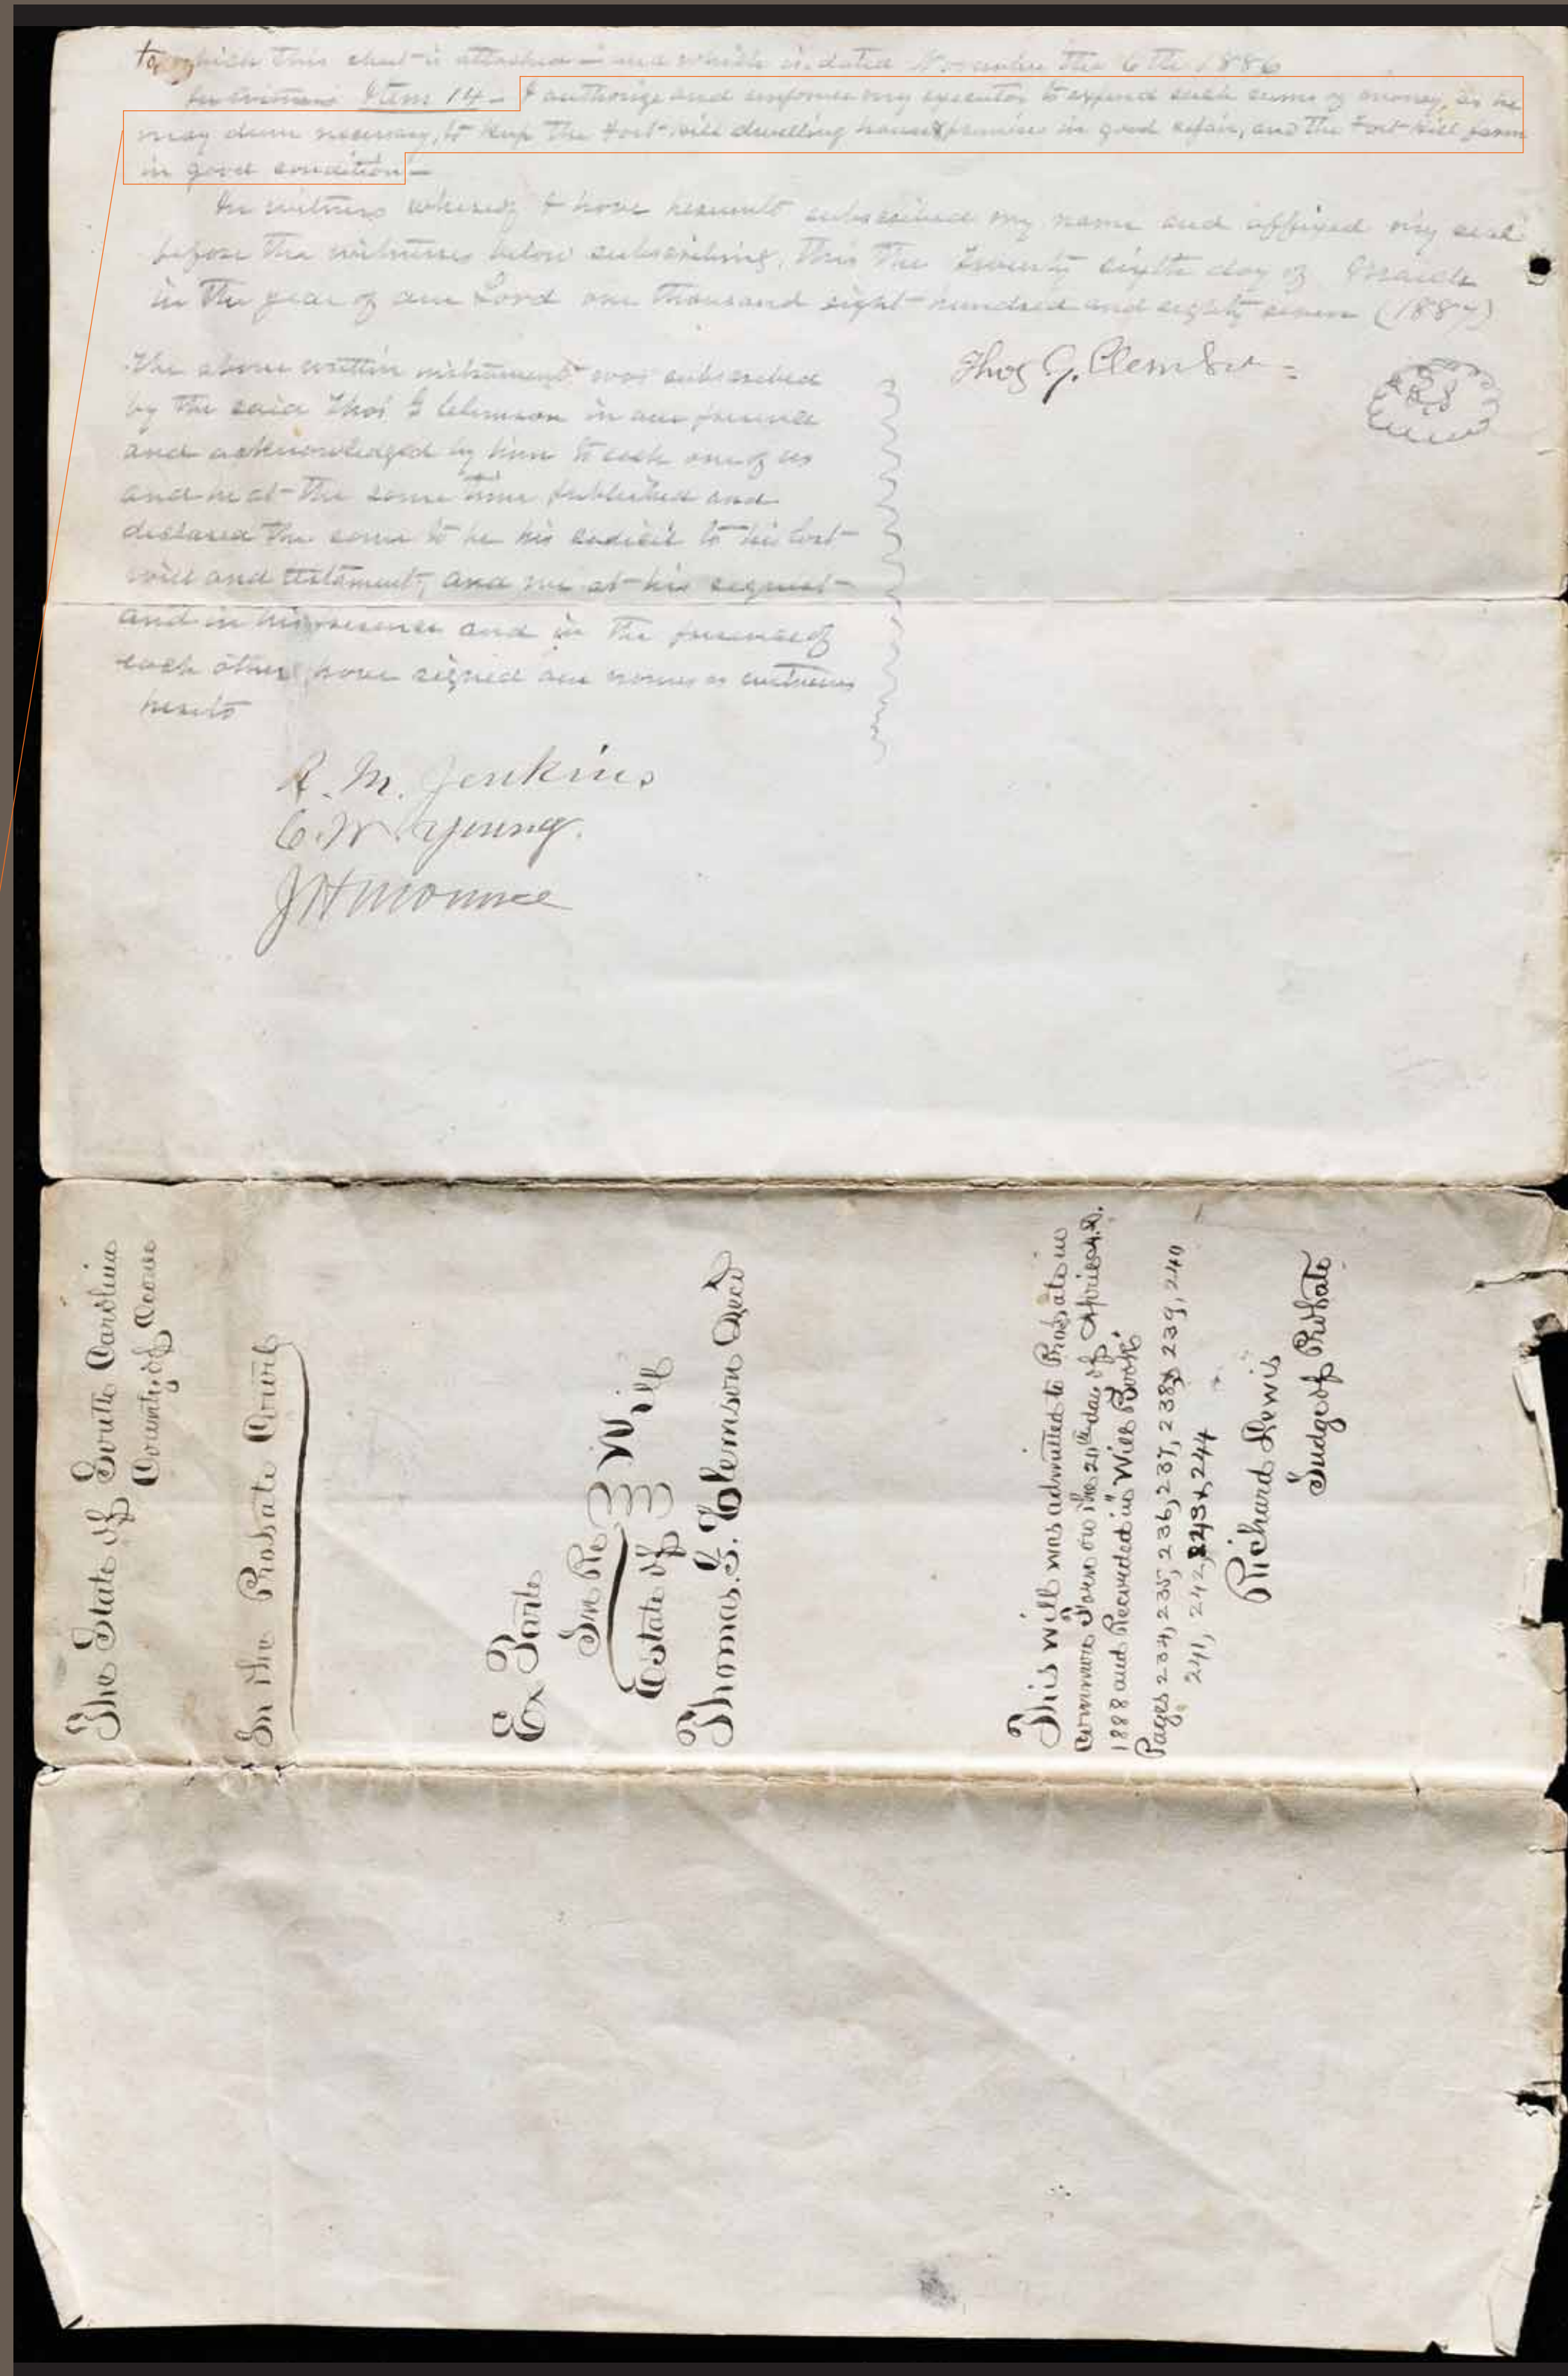 to which this sheet is attached – and which is dated November the 6th 1886
In witness Item 14 – I authorize and empower my executor to expend such sums of money, as he
may deem necessary, to keep the Fort-Hill dwelling house & premises in good repair, and the Fort-Hill farm
in good condition –
In witness whereof I have hereunto subscribed my name and affixed my seal
before the witnesses below subscribing, this the twenty sixth day of March
in the year of our Lord one thousand eight hundred and eighty seven (1887)
Thos G. Clemson
LS
The above written instrument was subscribed
by the said Thos G Clemson in our presence
and acknowledged by him to each one of us
and he at the same time published and
declared the same to be his codicil to his last
will and testament, and we at his request
and in his presence and in the presence of
each other, have signed our names as witnesses
hereto
R. M. Jenkins
C. W. Young.
The State of South Carolina
County of Oconee
In the Probate Court
Ex Parte
In Re
Will
Estate of
Thomas. G. Clemson Decd
This will was admitted to Probate in
Common Form on the day of April A.D.
1888 and Recorded in "Will Book"
Pages 234, 235, 236, 237, 238, 239, 240
241, 242, 243 & 244
Richard Lewis
Judge of Probate